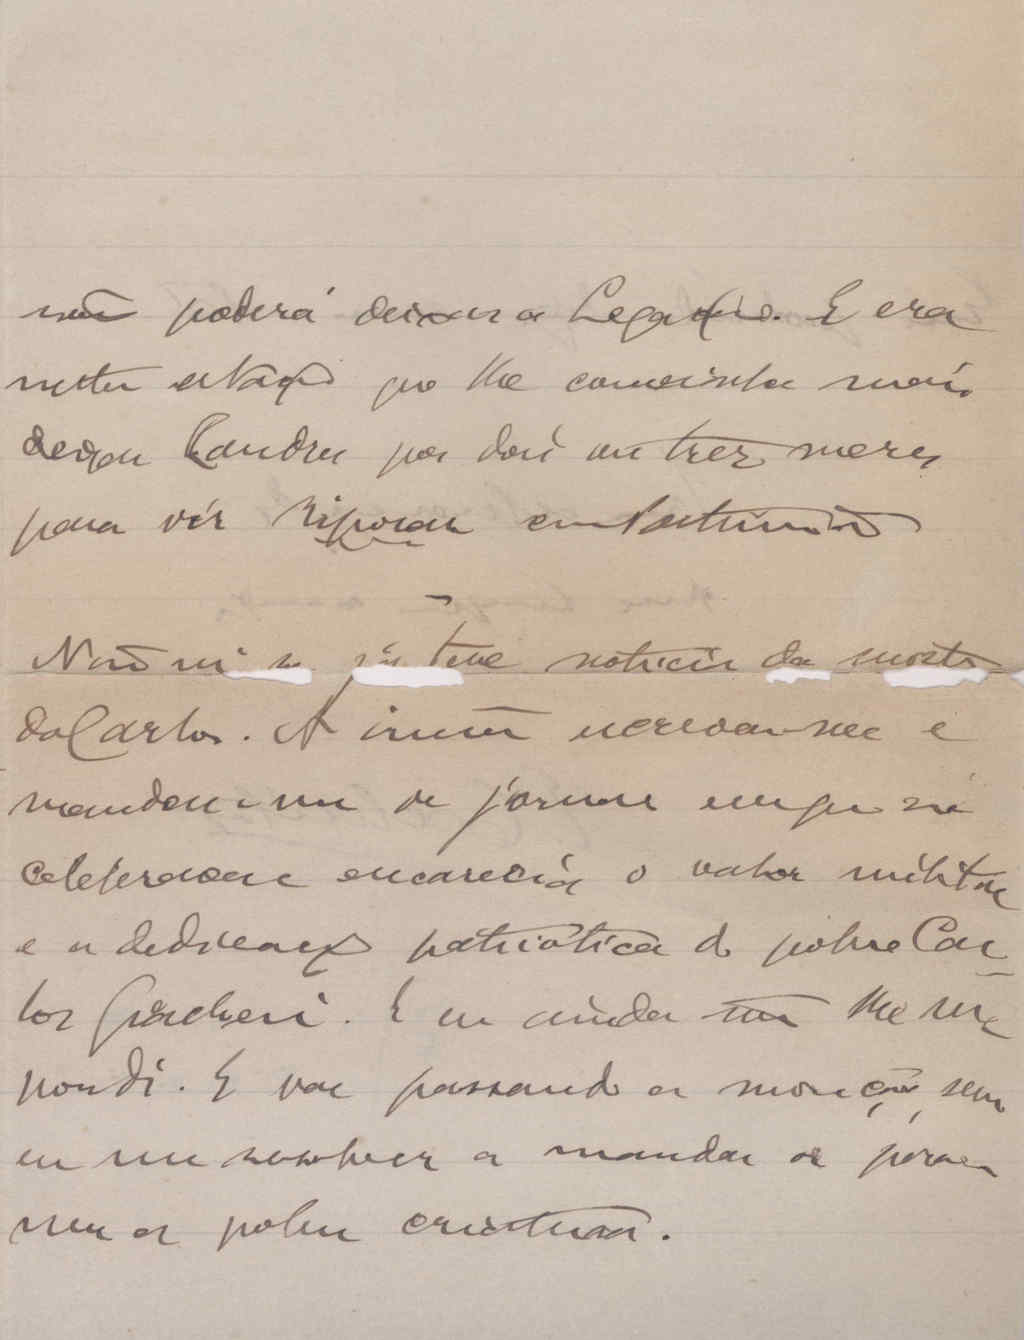 não poderá deixar a Legação. E era
nesta estação que lhe convinha mais
deixar Londres por dois ou trez mezes
para vir repousar em Portimão
Não sei se já teve noticia da morte
do Carlos. A irmã escreveu-me e
mandou-me os jornaes em que se
celebrava e encarecia o valor militar
e a dedicação patriotica do pobre Car-
los. E eu ainda não lhe res
pondi. E vae passando a monção sem
eu me resolver a mandar os
a pobre creatura.